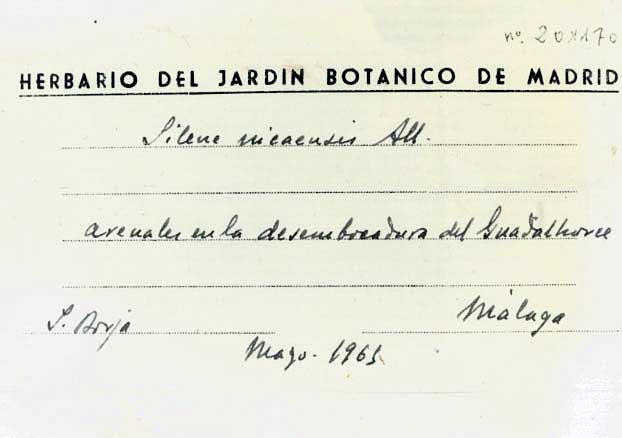 nº 201170
HERBARIO DEL JARDIN BOTANICO DE MADRID
Silene nicaensis All.
arenales en la desembocadura del Guadalhorce
Málaga
S. Borja
Mayo - 1965